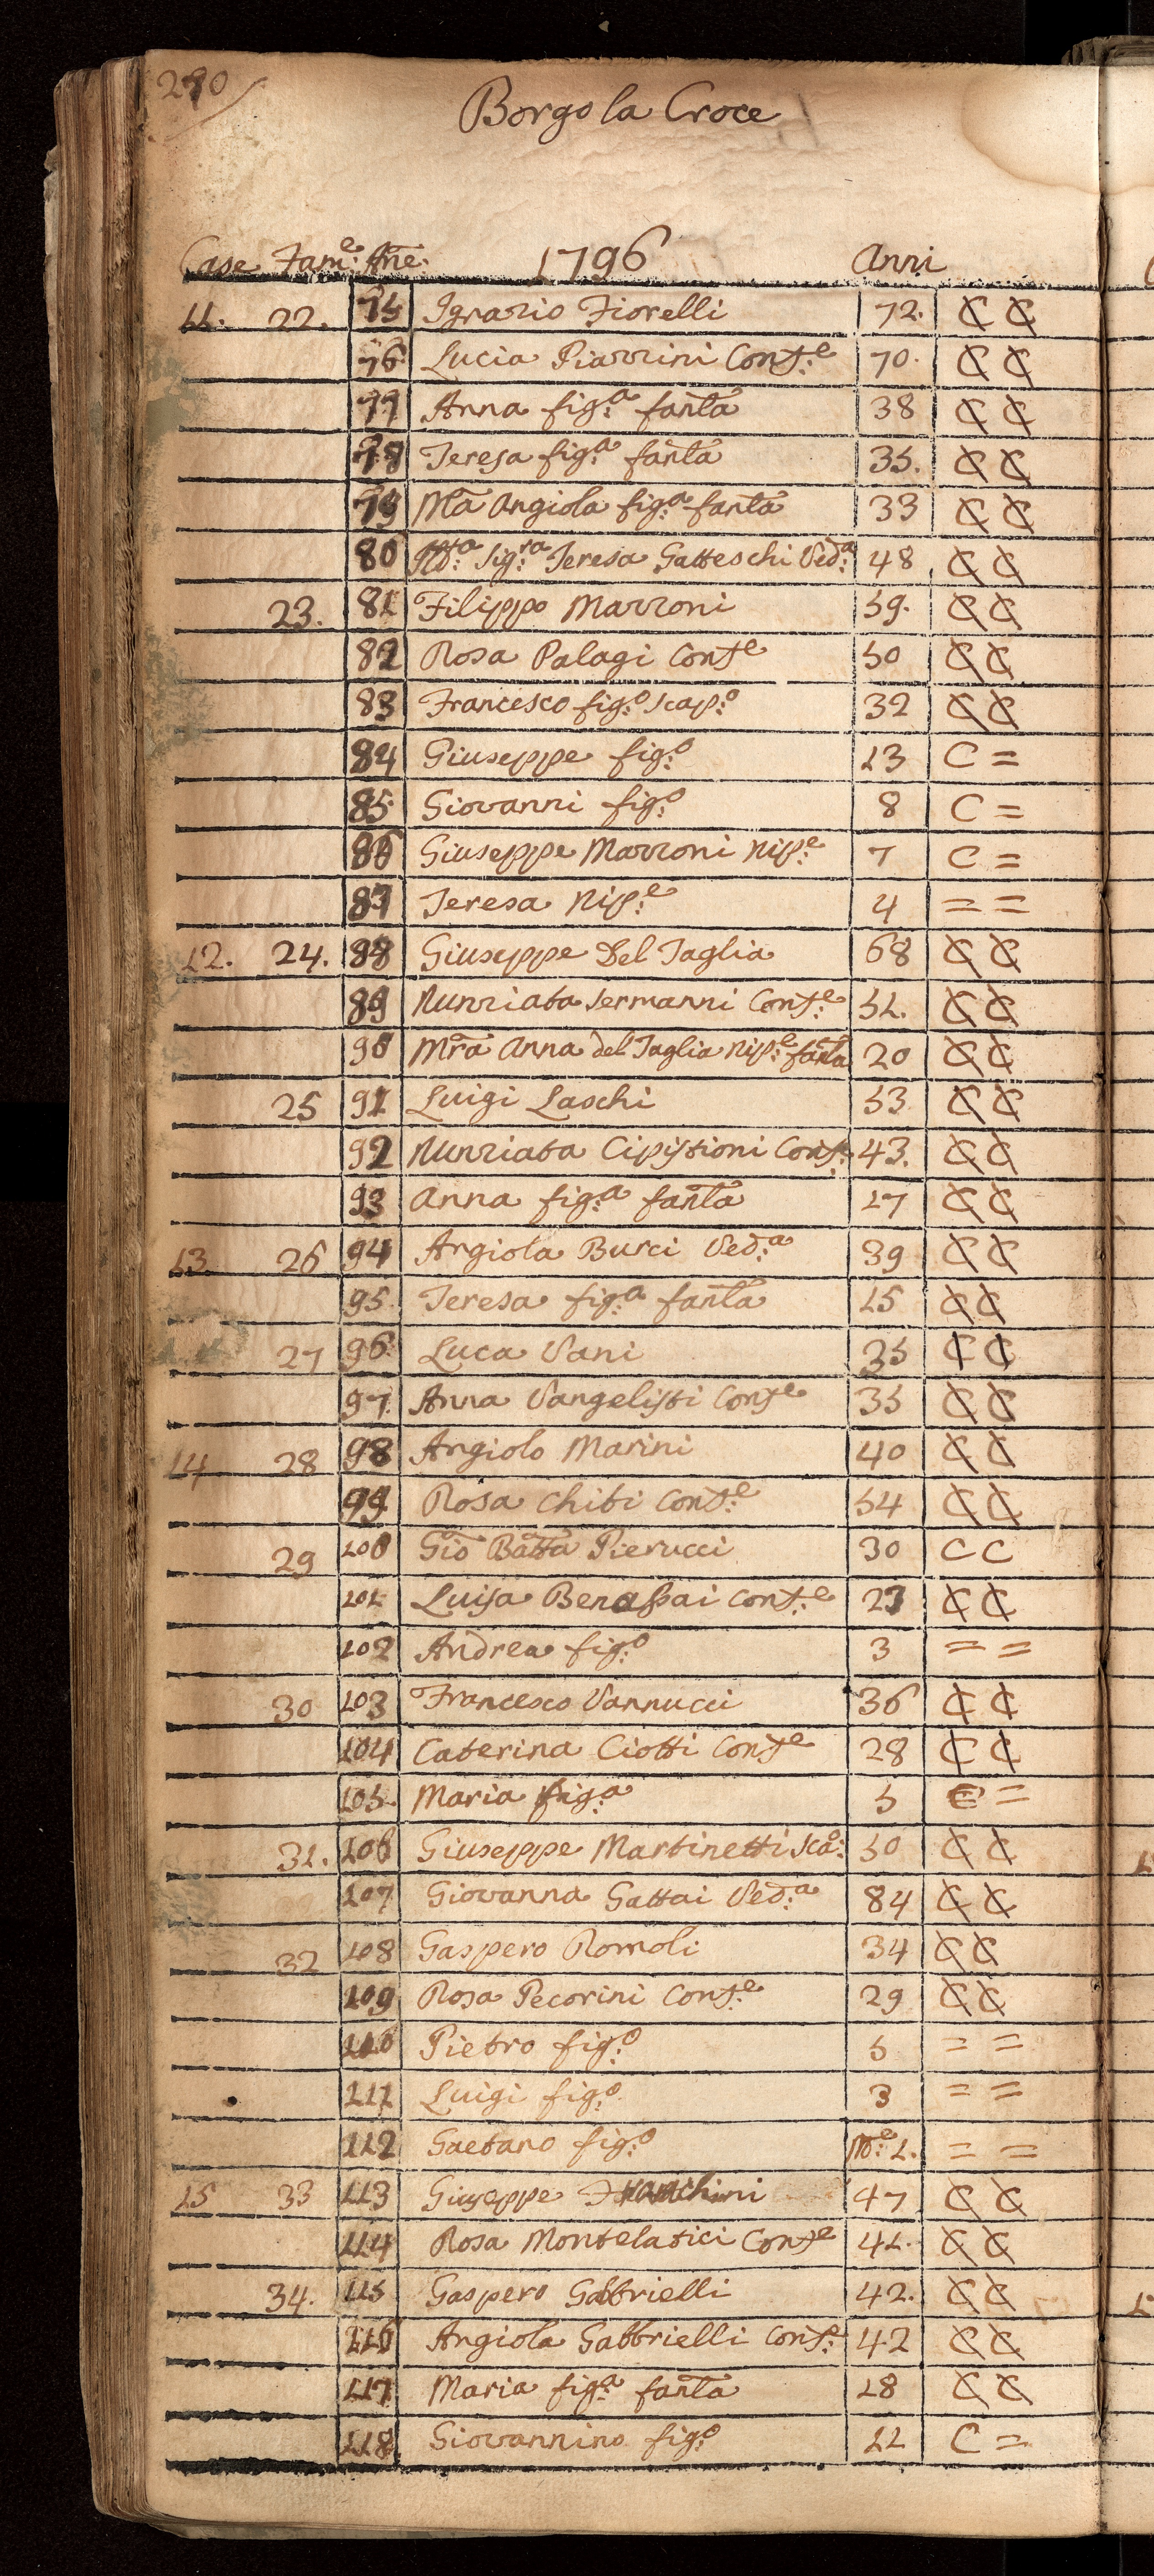 290
Borgo la Croce
Case Fam.e Ane. 1796 Anni
11. 22. 75 Ignazio Fiorelli 72. C C
76 Lucia Piazzini Cons.e 70. C C
77 Anna fig.a fanla 38 C C
78 Teresa fig.a fanla 35. C C
79 Ma Angiola fig.a fanla 33 C C
80 Sig.ra Teresa Gatteschi Ved.a 48 C C
23. 81 Filippo Mazzoni 59. C C
82 Rosa Palagi Cons.e 50 C C
83 Francesco fig.o scap.o 32 C C
84 Giuseppe fig.o 13 C =
85 Giovanni fig.o 8 C =
86 Giuseppe Mazzoni Nip.e 7 C =
87 Teresa Nip.e 4 = =
12. 24. 88 Giuseppe Del Taglia 68 C C
89 Nunziata Sermanni Cons.e 51. C C
90 Mra Anna del Taglia Nip.e fanla 20 C C
25 91 Luigi Laschi 53 C C
92 Nunziata Cipistioni Cons. 43. C C
93 Anna fig.a fanla 17 C C
13. 26 94 Angiola Burci Ved.a 39 C C
95 Teresa fig.a fanla 15 C C
27 96 Luca Vani 35 C C
97 Anna Vangelisti Cons.e 35 C C
14 28 98 Angiolo Marini 40 C C
99 Rosa Chiti Cons.e 54 C C
29 100 Gio Batta Pierucci 30 C C
101 Luisa Benassai Cons.e 23 C C
102 Andrea fig.o 3 = =
30 103 Francesco Vannucci 36 C C
104 Caterina Ciotti Cons.e 28 C C
105 Maria fig.a 5 C =
31. 106 Giuseppe Martinetti sca.o 50 C C
107 Giovanna Gattai Ved.a 84 C C
32 108 Gaspero Romoli 34 C C
109 Rosa Pecorini Cons.e 29 C C
110 Pietro fig.o 5 = =
111 Luigi fig.o 3 = =
112 Gaetano fig.o M.e 1. = =
15 33 113 Giuseppe Franchini 47 C C
114 Rosa Montelatici Cons.e 41. C C
34. 115 Gaspero Gabbrielli 42. C C
116 Angiola Gabbrielli Cons.e 42 C C
117 Maria fig.a fanla 18 C C
118 Giovannino fig.o 11 C =